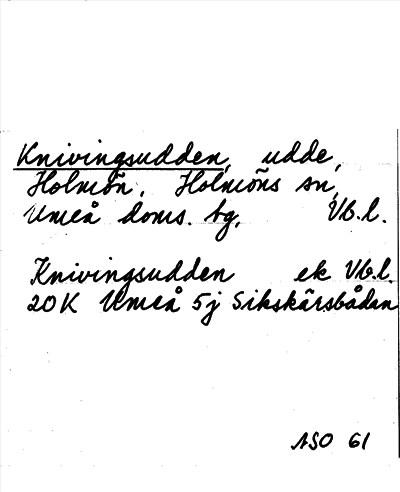 Knivingsudden, udde,
Holmön, Holmöns sn,
Umeå doms. bg, Vb.l.
Knivingsudden ek Vb.l.
20K Umeå 5j Sikskärsbådan
ASO 61